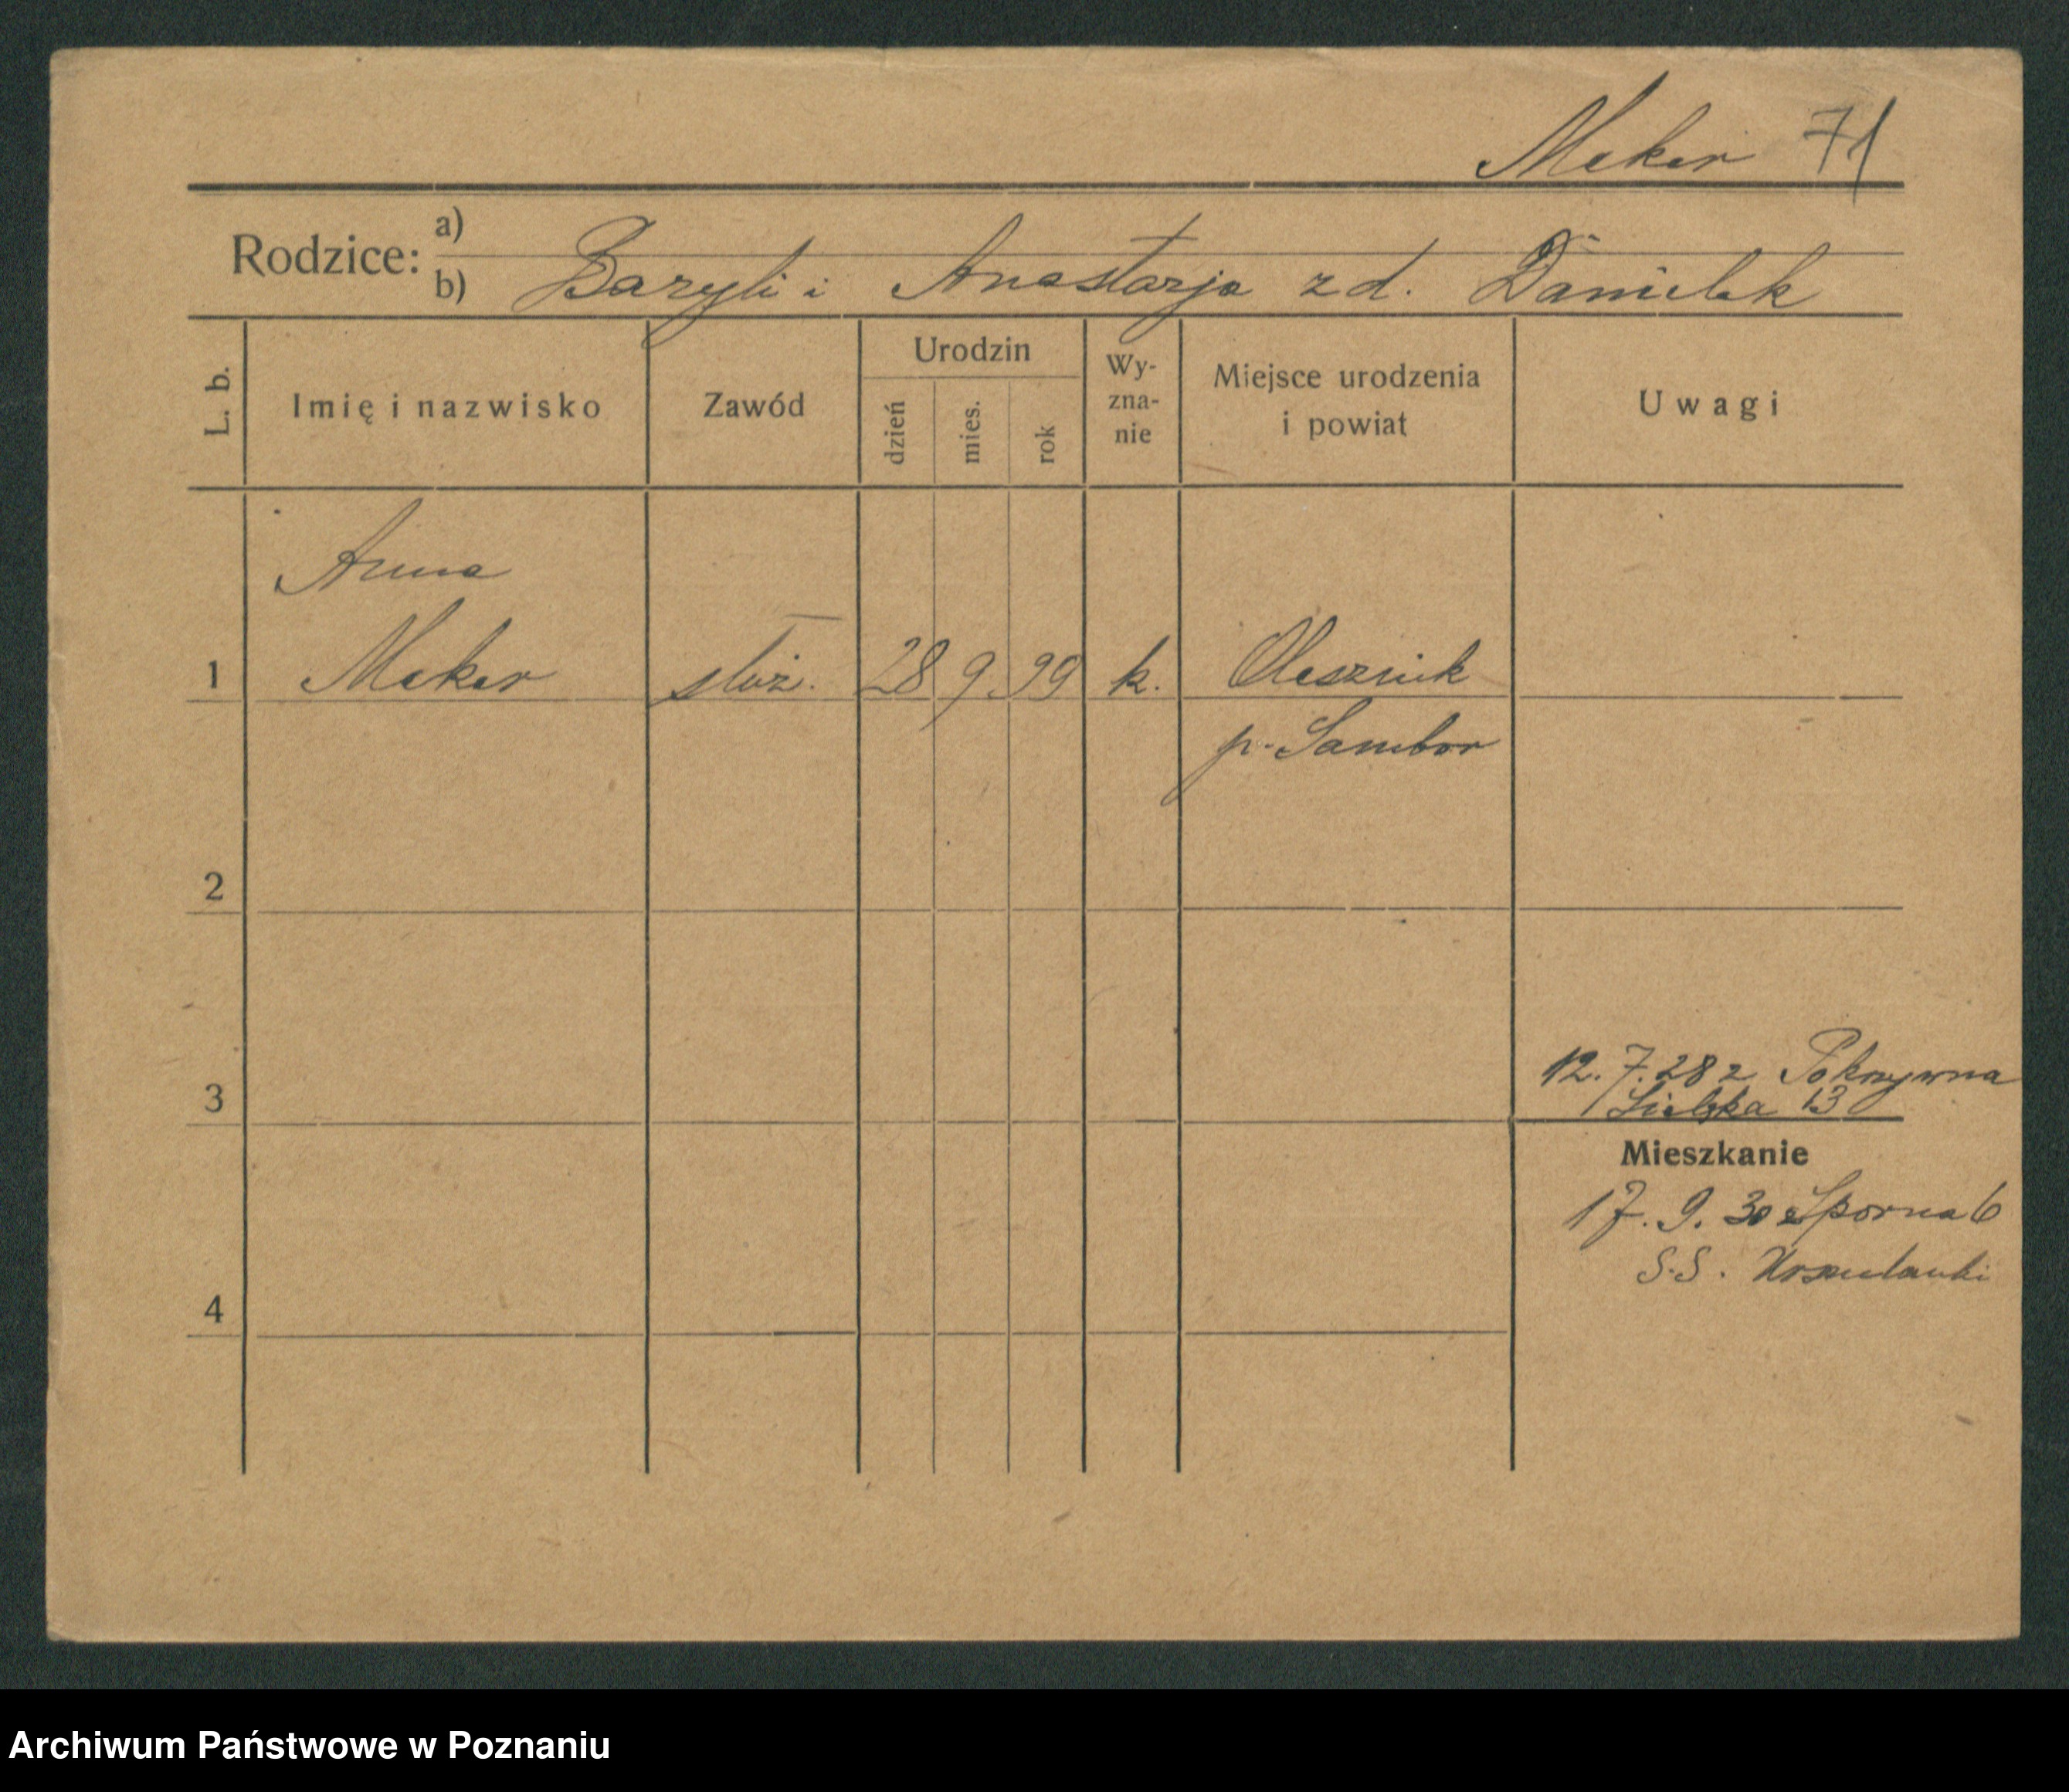 Meker 71
Rodzice: a)
b) Bazyli i Anastazja z d. Danielek
L. b.
Imię i nazwisko
Zawód
Urodzin
dzień
mies.
rok
Wy-
zna-
nie
Miejsce urodzenia
i powiat
Uwagi
Anna
1 Meker służ. 28 9. 99 k.
p. Sambor
2
12. 7. 28 z Pokrzywna
3 13
Mieszkanie
17. 9. 30 z Sporna 6
S.S. Urszulanki
4
Archiwum Państwowe w Poznaniu